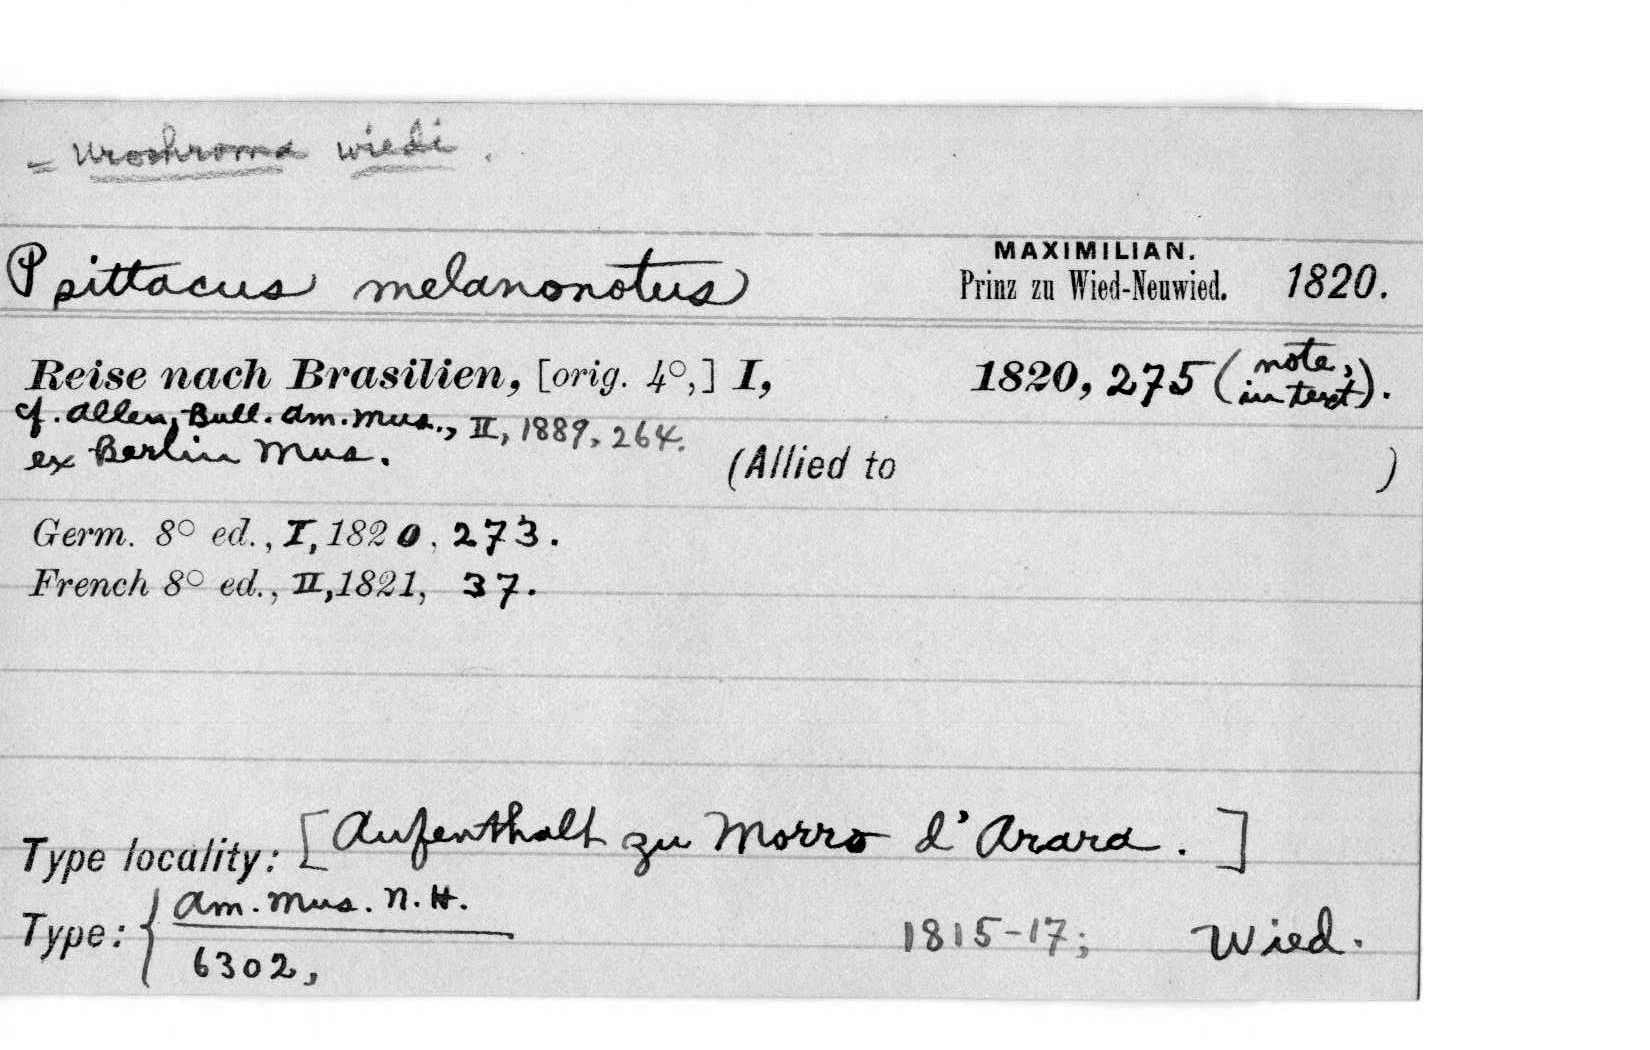 = Urochroma wiedi.
Psittacus melanonotus MAXIMILIAN. Prinz zu Wied-Neuwied. 1820.
Reise nach Brasilien, [orig. 4°,] I, 1820, 275 (note, in text).
cf. Allen, Bull. Am. Mus., II, 1889, 264.
ex Berlin Mus.
(Allied to )
Germ. 8° ed., I, 1820, 273.
French 8° ed., II, 1821, 37.
Type locality: [Aufenthalt zu Morro d'Arara.]
Type: { Am. Mus. N. H.
6302, 1815-17; Wied.